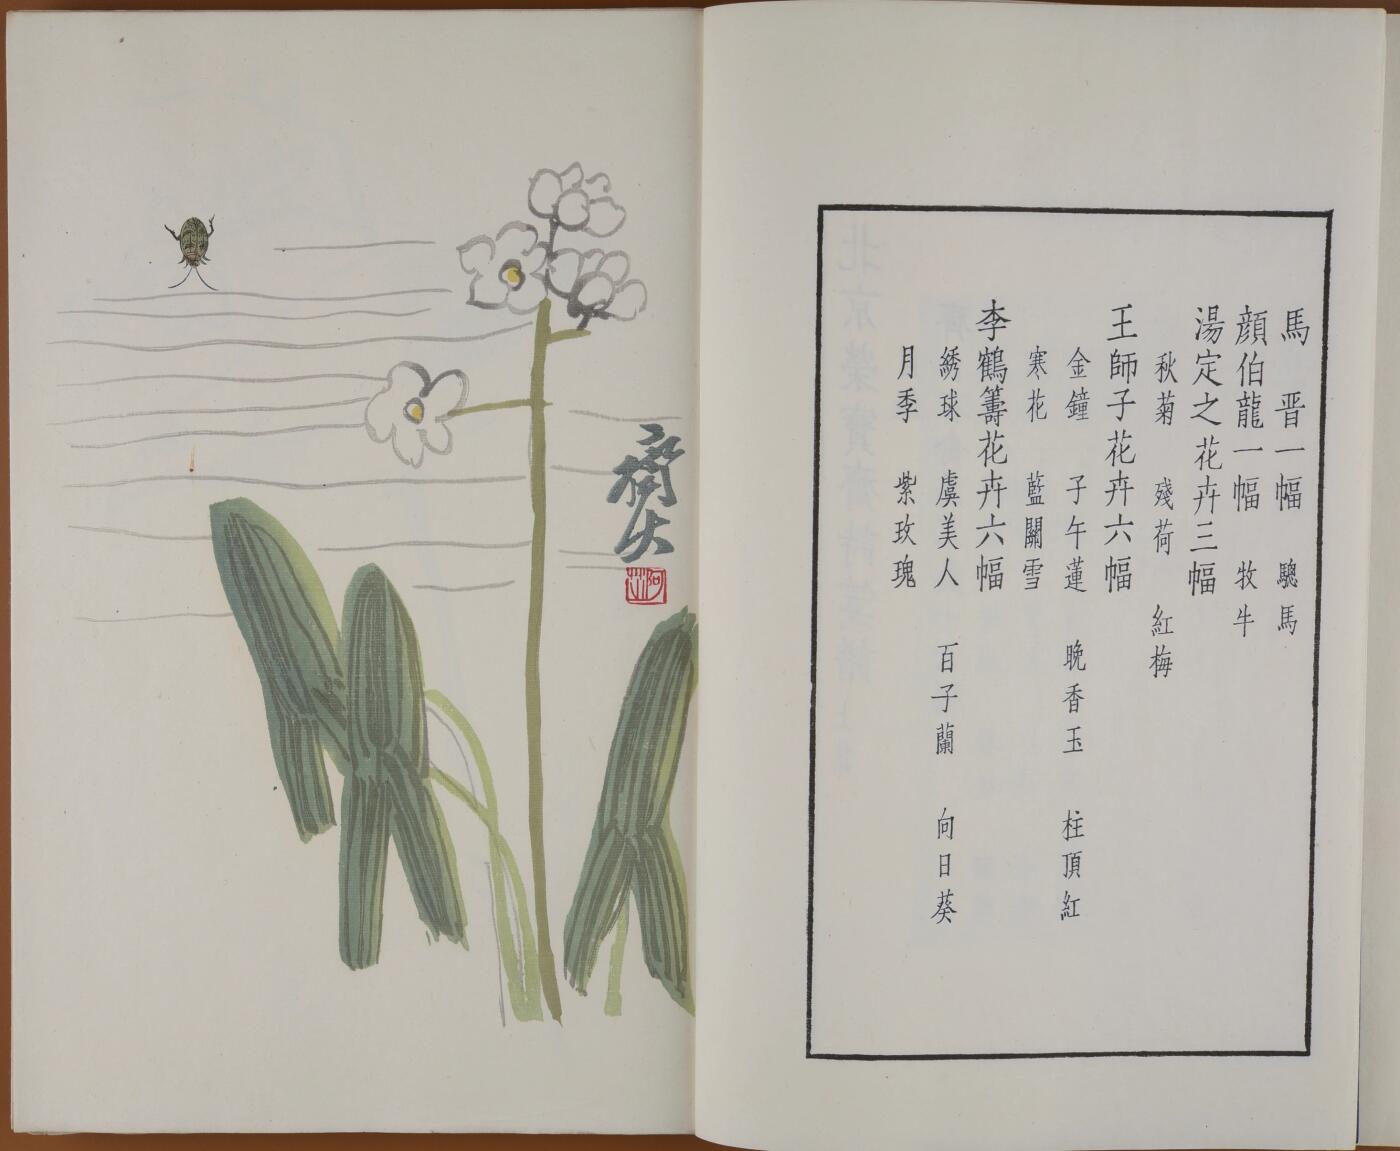 馬 晋一幅 驄馬
顔伯龍一幅 牧牛
湯定之花卉三幅
秋菊 殘荷 紅梅
王師子花卉六幅
金鐘 子午蓮 晚香玉 柱頂紅
寒花 藍關雪
李鶴籌花卉六幅
綉球 虞美人 百子蘭 向日葵
月季 紫玫瑰
齊大
阿芝